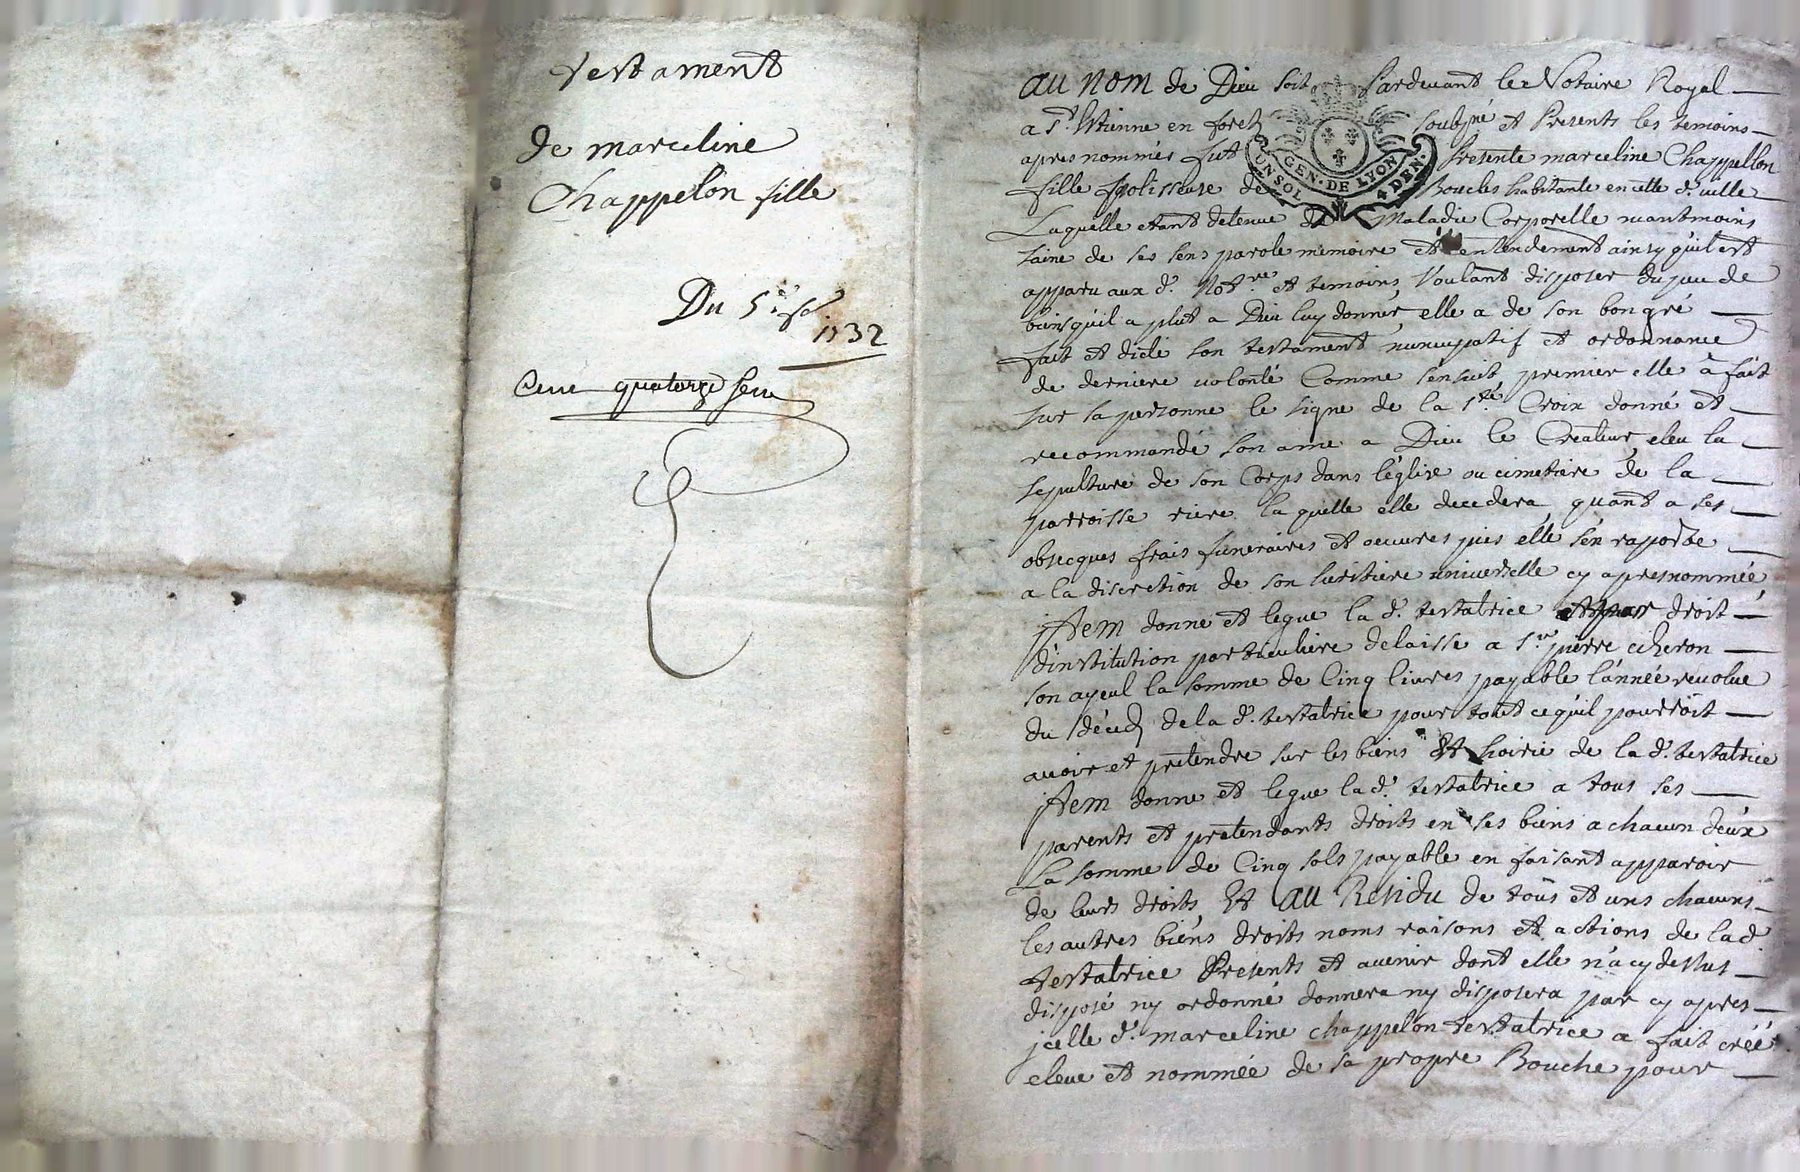 Testament
de marceline
Chappelon fille
Du 5e
1732
Cent quatorze
au nom de Dieu soit Pardevant le Notaire Royal
a St. Etienne en forest soubsné et Presents les temoins
apres nommés fut Presente marceline Chappellon
fille polisseuse de Boucles habitante en cette d. ville
Laquelle etant detenue de Maladie Corporelle neantmoins
saine de ses sens parole memoire et entendement ainsy quil est
apparu aux d. Notre et temoins, Voulant disposer du peu de
biens quil a plut a Dieu luy donner, elle a de son bon gré
fait et dicté son testament nuncupatif et ordonnance
de derniere volonté Comme s'ensuit premier elle à fait
sur sa personne le signe de la Ste Croix donné et
recommandé son ame a Dieu le Createur, eleu la
sepulture de son Corps dans l'église ou cimetiere de la
parroisse riere la quelle elle decedera, quant a ses
obsecques frais funeraires et oeuvres pies elle s'en raporte
a la discretion de son heritiere universelle cy apres nommée
Item donne et legue la d. testatrice et par droit
d'institution particuliere delaisse a Sr. pierre
son ayeul la somme de Cinq livres payable l'année revolue
du déced de la d. testatrice pour tout ce quil pourroit
avoir et pretendre sur les biens et hoirie de la d. testatrice
Item donne et legue la d. testatrice a tous ses
parents et prétendants droits en ses biens a chacun deux
La somme de Cinq sols payable en faisant apparoir
de leurs droits, Et au Residu de tous et uns chacuns
les autres biens droits noms raisons et actions de la d.
testatrice Presents et avenir dont elle n'a cy dessus
disposé ny ordonné donnera ny disposera par cy apres
jcelle d. marceline chappelon testatrice a fait créé
eleue et nommée de sa propre Bouche pour
GEN. DE LYON
UN SOL 4 DEN.